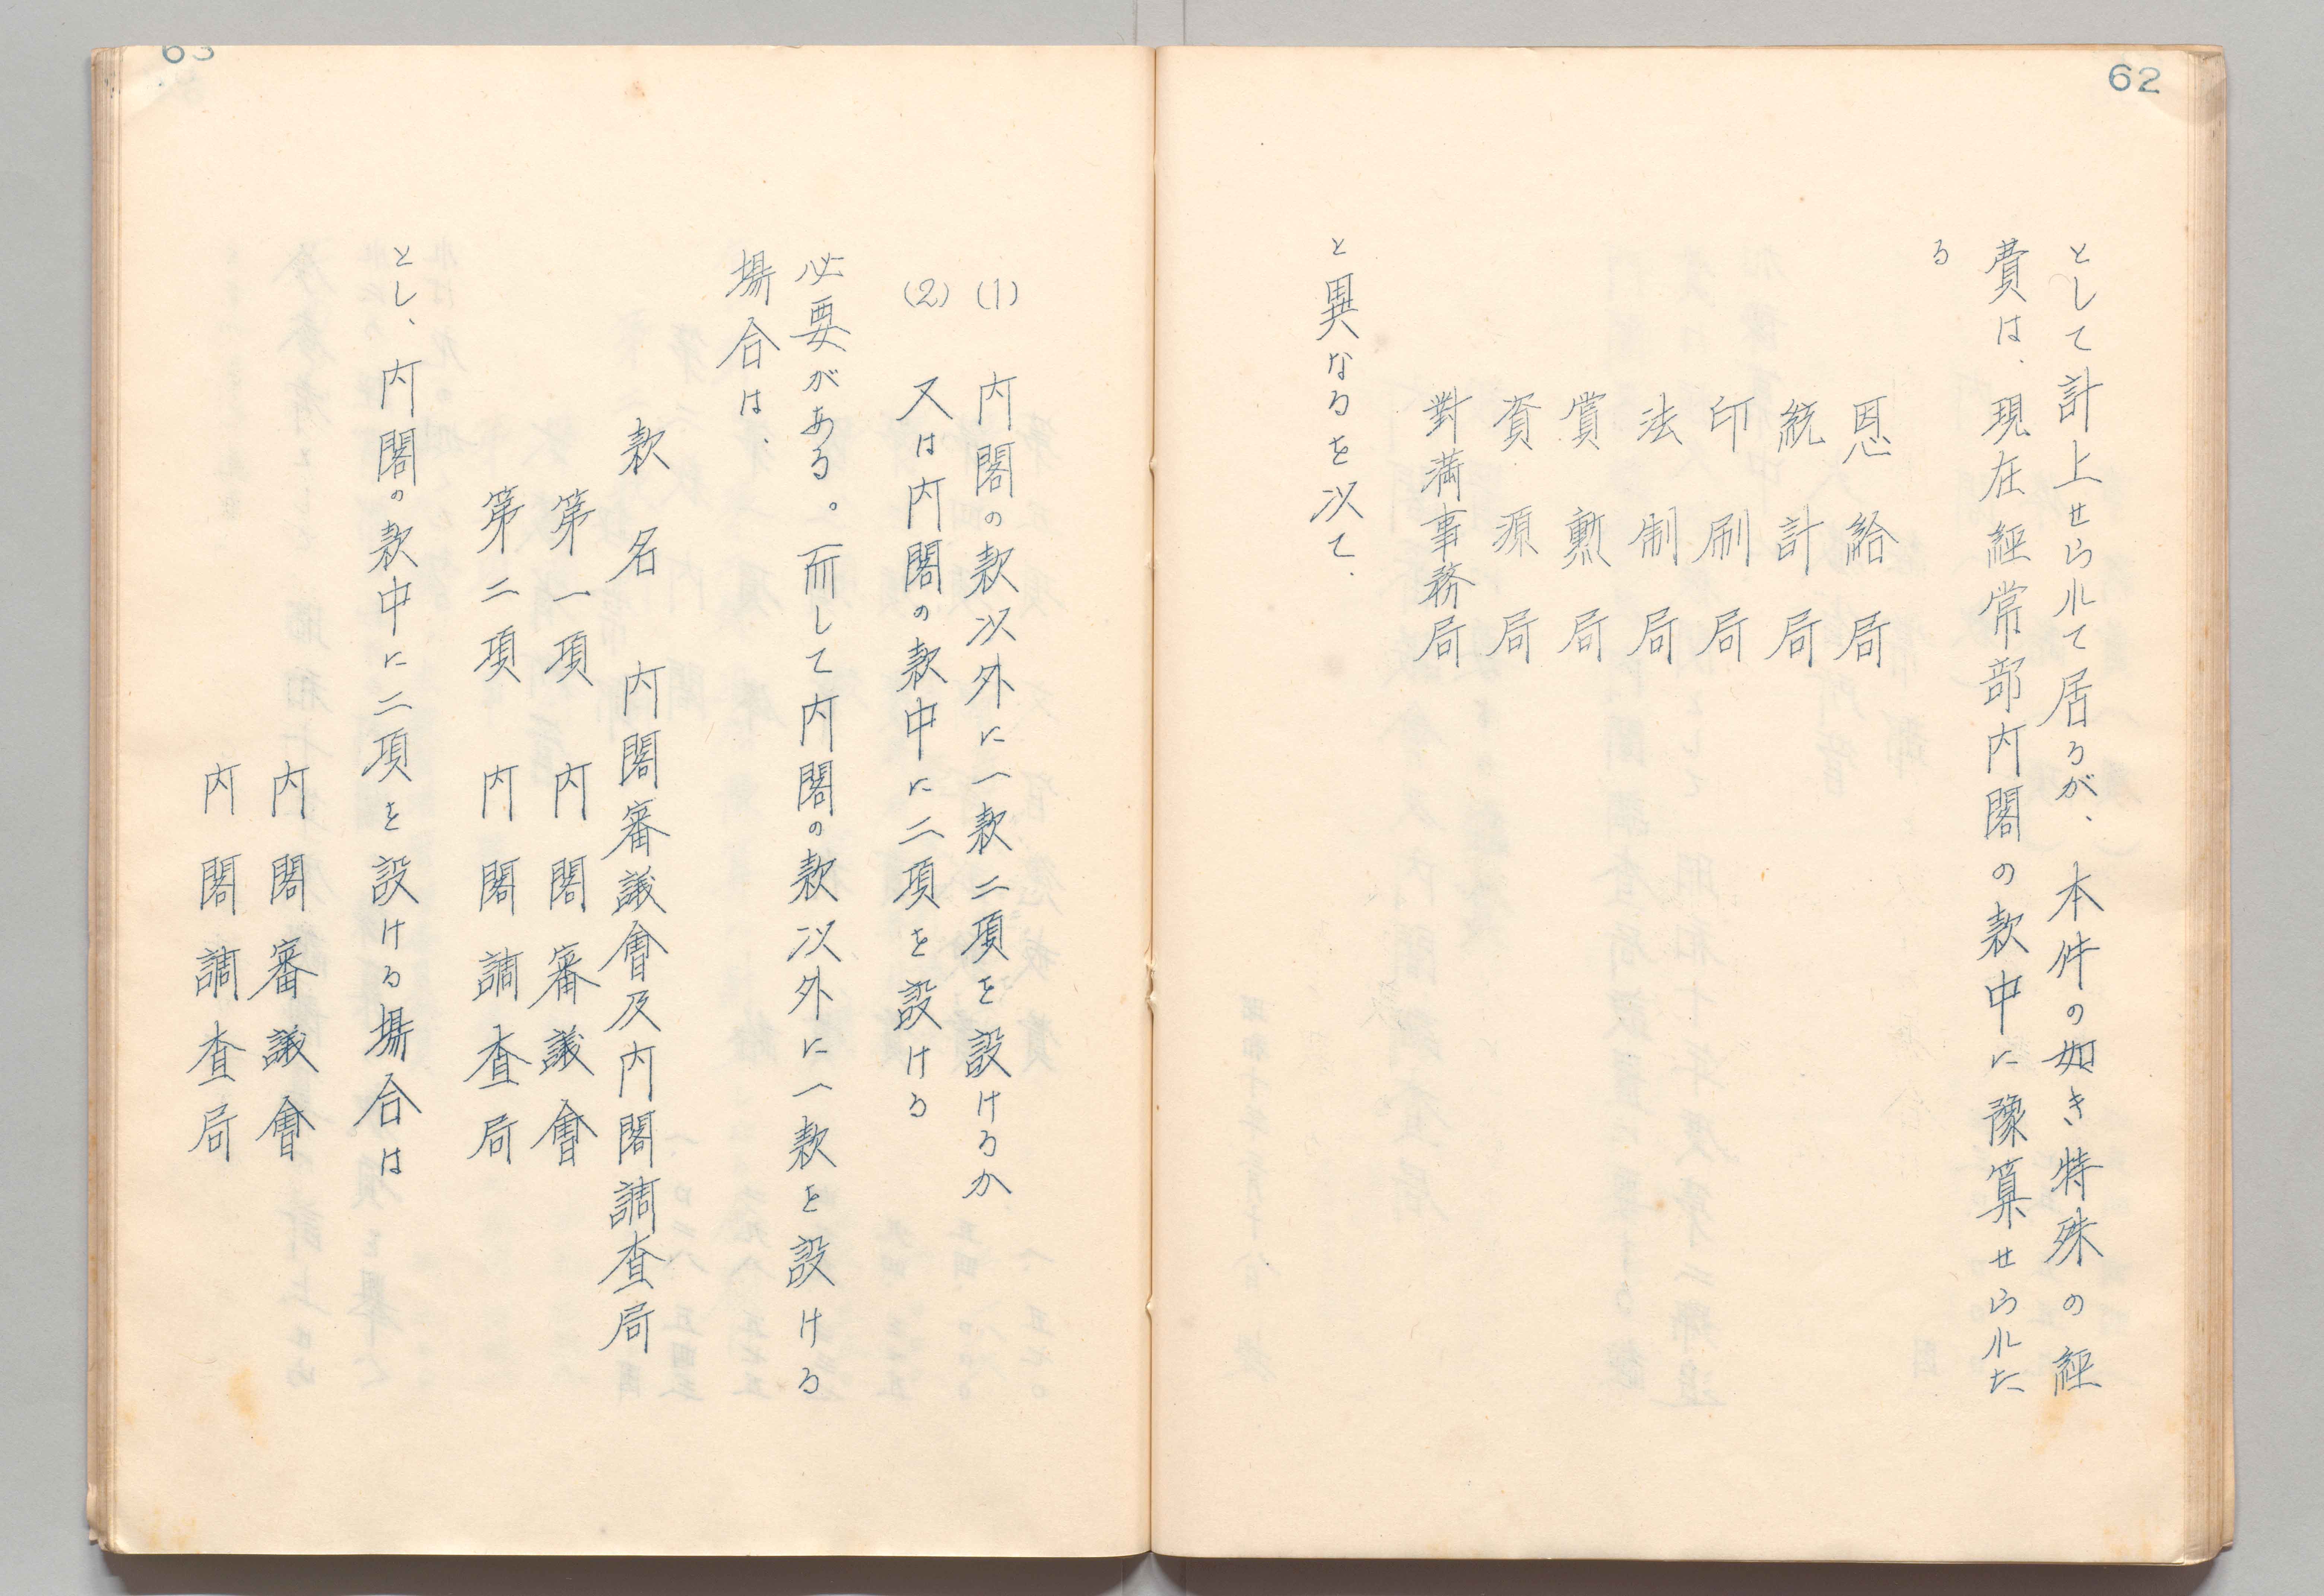 62
として計上せられて居るが、本件の如き特殊の経
費は、現在経常部内閣の款中に豫算せられた
る
恩給局
統計局
印刷局
法制局
賞勲局
資源局
對満事務局
と異なるを以て、
63
(1) 内閣の款以外に一款二項を設けるか
(2) 又は内閣の款中に二項を設ける
必要がある。而して内閣の款以外に一款を設ける
場合は、
款名 内閣審議會及内閣調査局
第一項 内閣審議會
第二項 内閣調査局
とし、内閣の款中に二項を設ける場合は
内閣審議會
内閣調査局